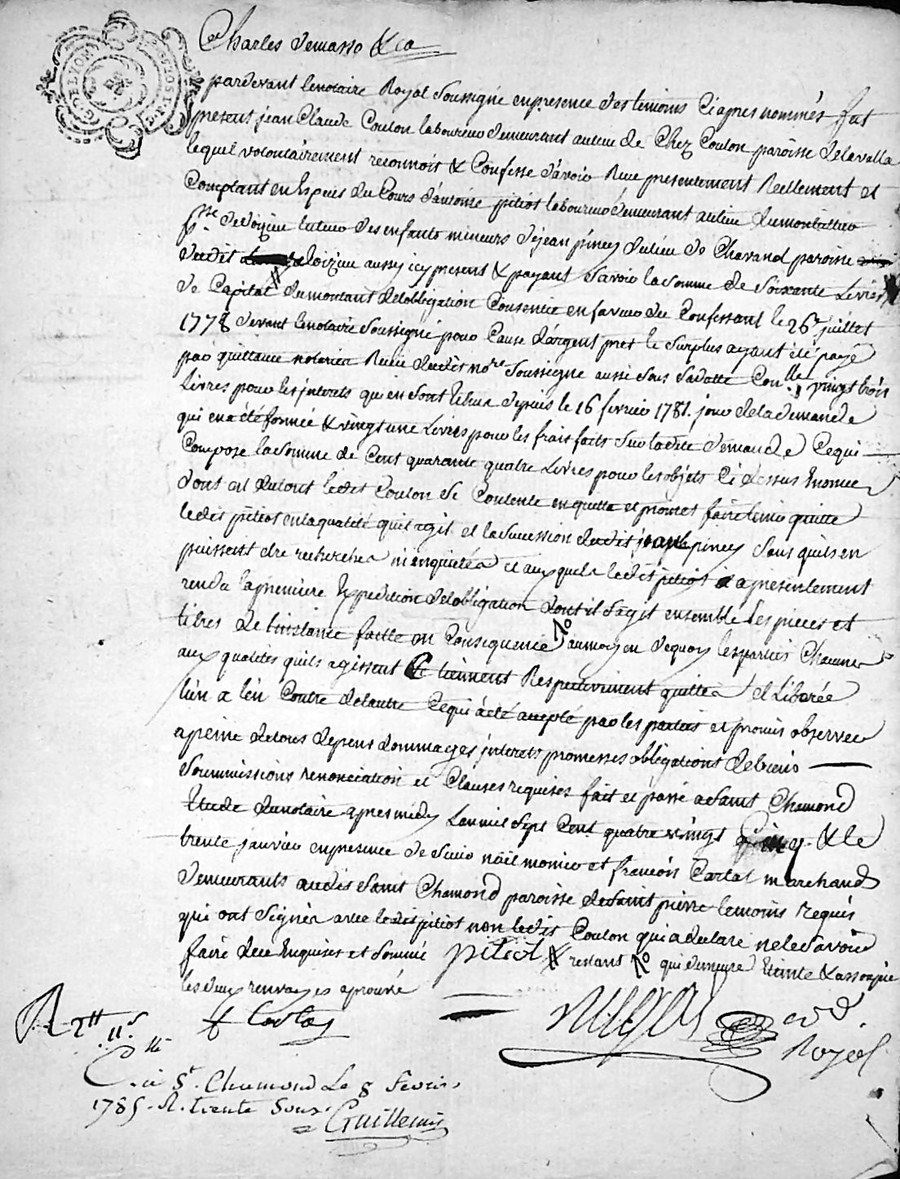 Charles demasso &ca
pardevant lenotaire Royal Soussigné enpresence des temoins Ciapres nommés fut
present jean Claude Coulon laboureur demeurant aulieu de Chez Coulon paroisse delavalla
lequel volontairement reconnoit & Confesse davoir Recu presentement Reellement et
Comptant en Especes du Cours dantoine pitiot laboureur demeurant aulieu
psse dedoizieu tuteur des enfants mineurs dejean piney dulieu de Chavanol paroisse
dudit doizieu aussy icy present & payant Savoir la Somme de Soixante Livres
de Capital dumontant delobligation Consentie enfaveur du Confessant le 26e juillet
1778 devant lenotaire Soussigné pour Cause dargent preté le Surplus ayant été payé
par quittance notariée Recue dudit nore Soussigné aussi Sous Sadatte Conlle, vingt trois
Livres pour les interets qui en Sont Echus depuis le 16 fevrier 1781. jour delademande
qui en a été formée & vingt une Livres pour les frais faits Sur ladite demande Cequi
Compose la Somme de Cent quarante quatre Livres pour les objets Ci dessus Enoncés
dont et dutout ledit Coulon Se Contente enquitte et promet faire tenir quitte
ledit pitiot enlaqualité quil agit et la Succession dudit jean piney Sans quils en
puissent etre recherchés ni enquietés et auxquels ledit pitiot a apresentement
rendu lapremiere Expedition delobligation dont il Sagit ensemble les pieces et
titres de linstance faitte en Consequence aumoyen dequoy lesparties Chacune
aux qualités quils agissent Se tiennent Respectivement quittes et Liberée
lun a len Contre delautre Cequi a été accepté par les parties et promis observer
apeine detous depens dommages interets promesses obligations debiens
Soummissions renonciation et Clauses requises fait et passé a Saint Chamond
Etude dunotaire apres midy Lanmil Sept Cent quatre vingt cinq & le
trente janvier enpresence de Sieur noël monier et francois Carlat marchands
demeurants audit Saint Chamond paroisse deSaint pierre temoins requis
qui ont Signés avec ledit pitiot non ledit Coulon qui a declaré nele Savoir
faire dece Enquises et Sommé pitiot & restant qui demeure Eteinte & assoupie
les deux renvoyes aprouvé
f Carlat
R 2tt 11s
C à St. Chamond Le 8 fevrier
1785. R. trente Sous
Guillemin
Royal